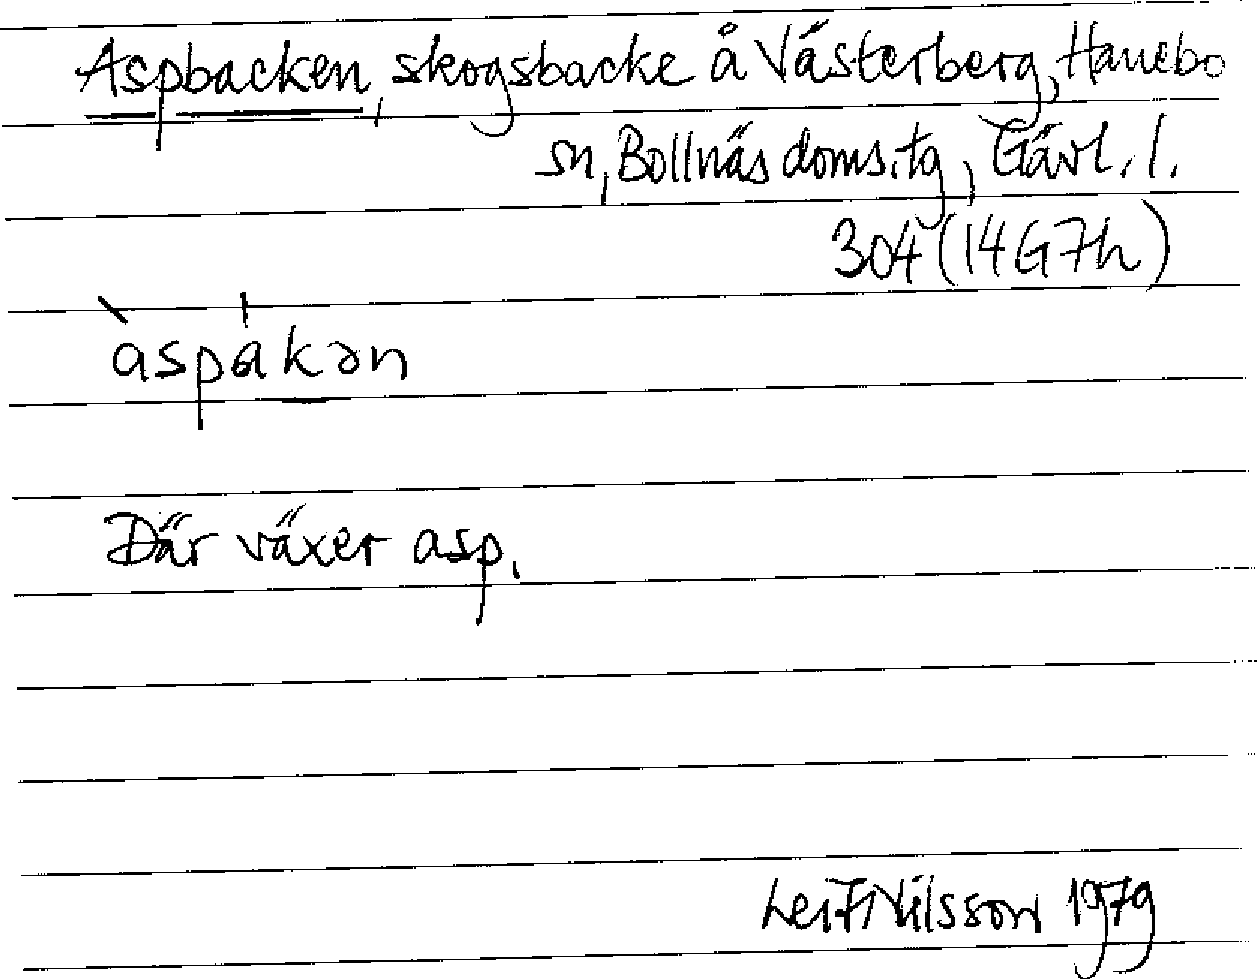 Aspbacken, skogsbacke å Västerberg, Hanebo
sn, Bollnäs doms.tg, Gävl. l.
304 (14G7h)
àspákən
Där växer asp.
Leif Nilsson 1979